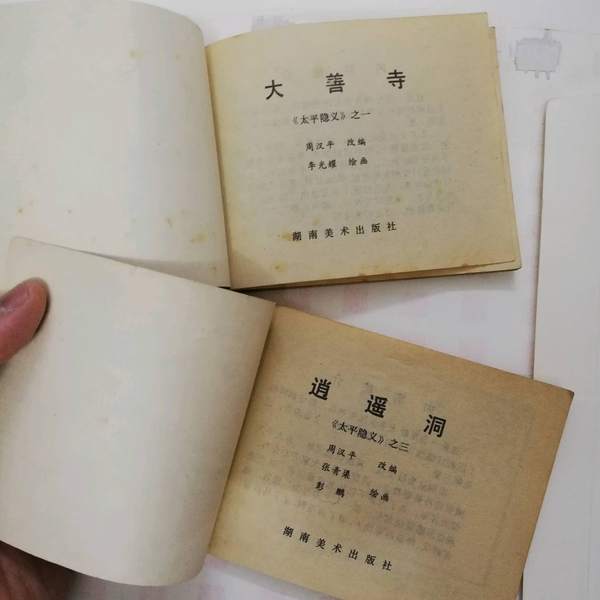 大善寺
《太平隐义》之一
周汉平 改编
李光耀 绘画
湖南美术出版社
逍遥洞
《太平隐义》之三
周汉平 改编
张青渠
彭鹏 绘画
湖南美术出版社